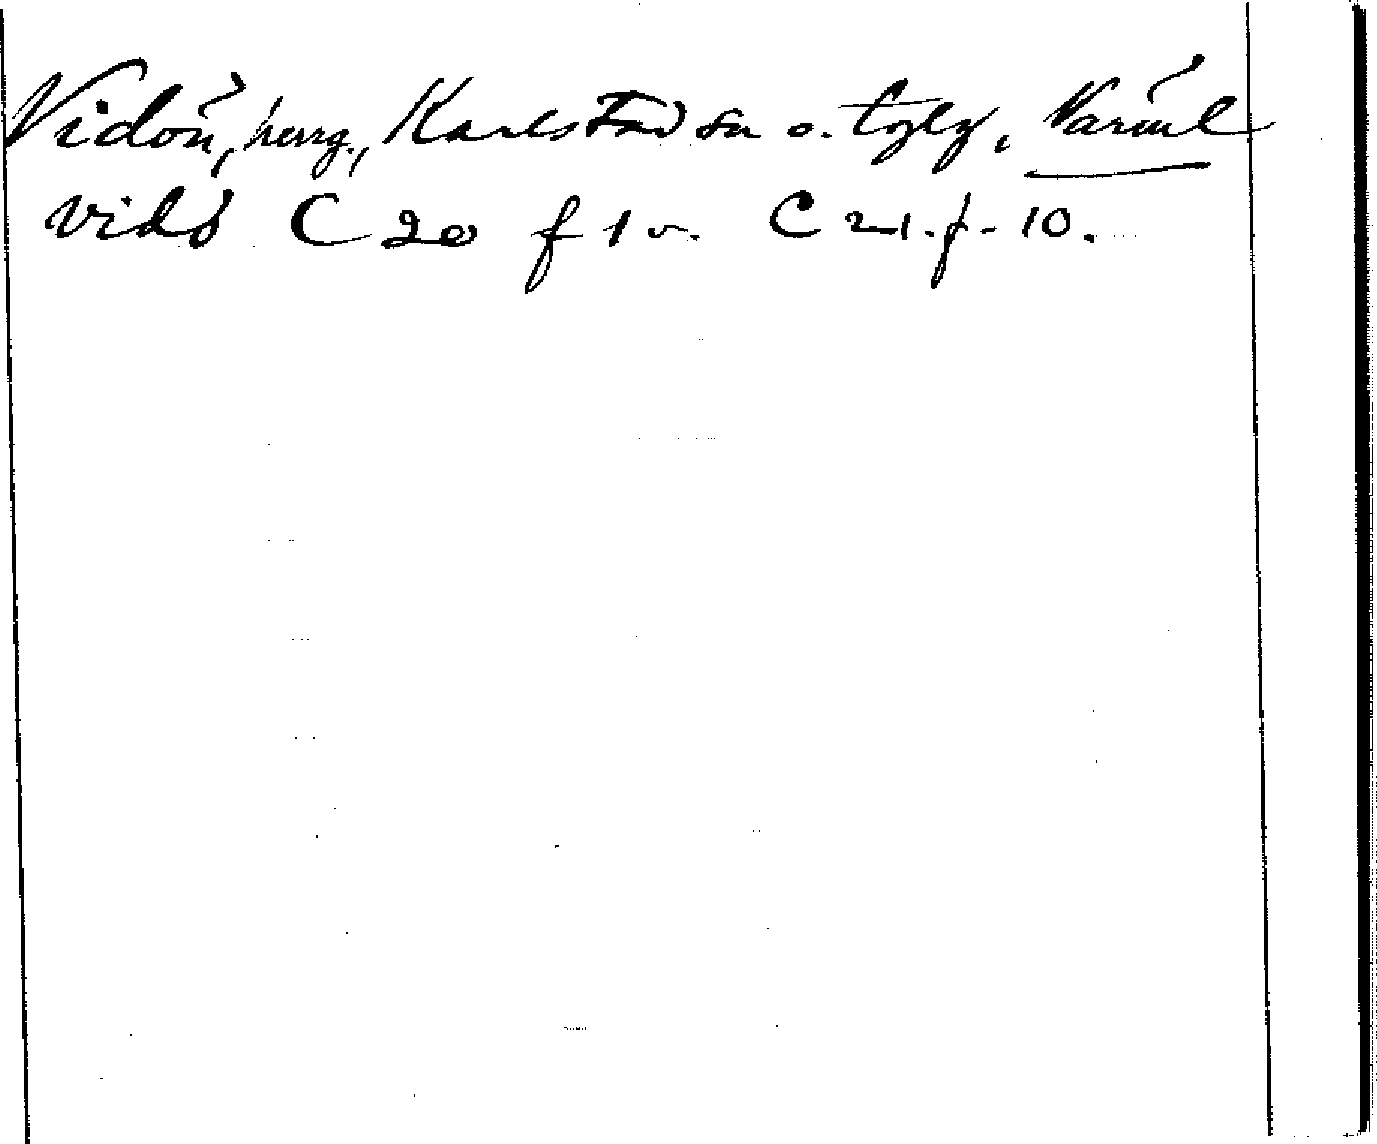 Vidön, herrg., Karlstads sn o. tgl, Värml
vidö C 20 f 1 v. C 21. f. 10.